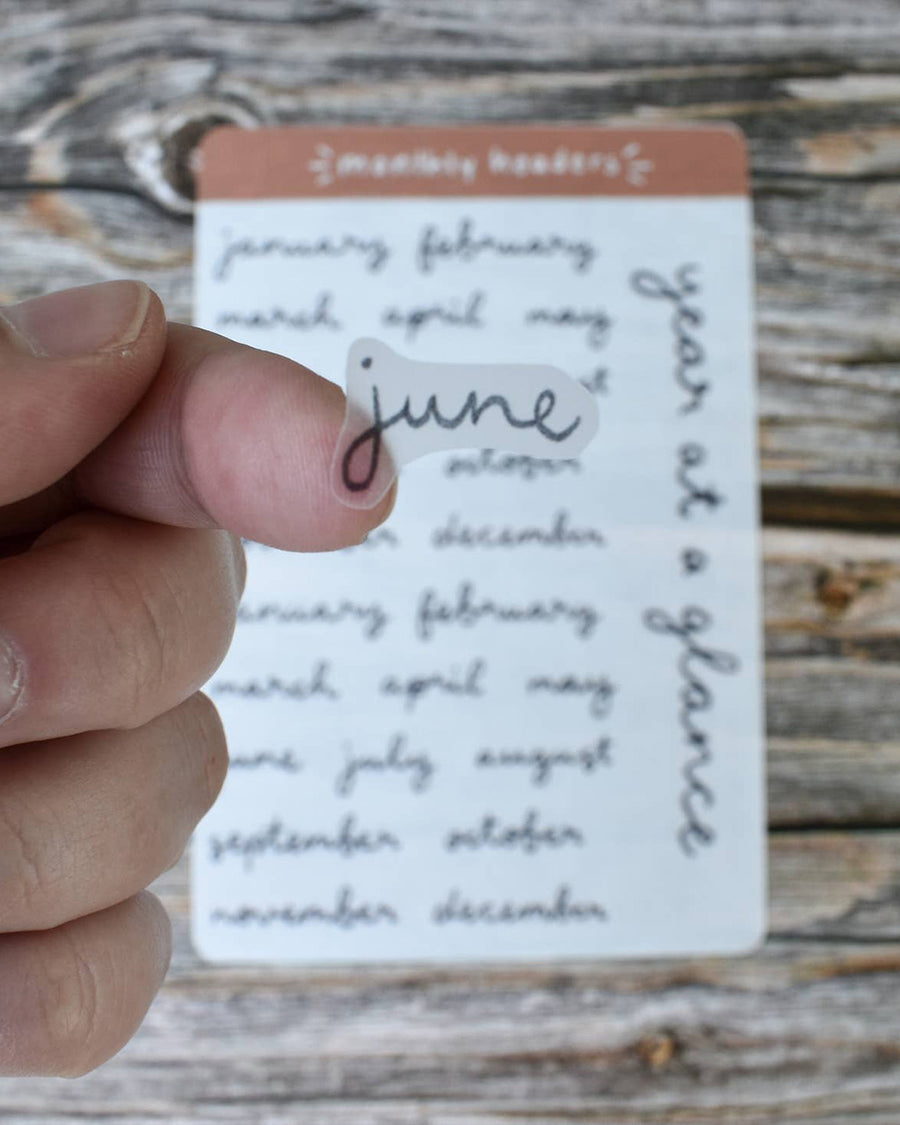 monthly headers
january february
march april may
june
october
december
january february
march april may
june july august
september october
november december
year at a glance